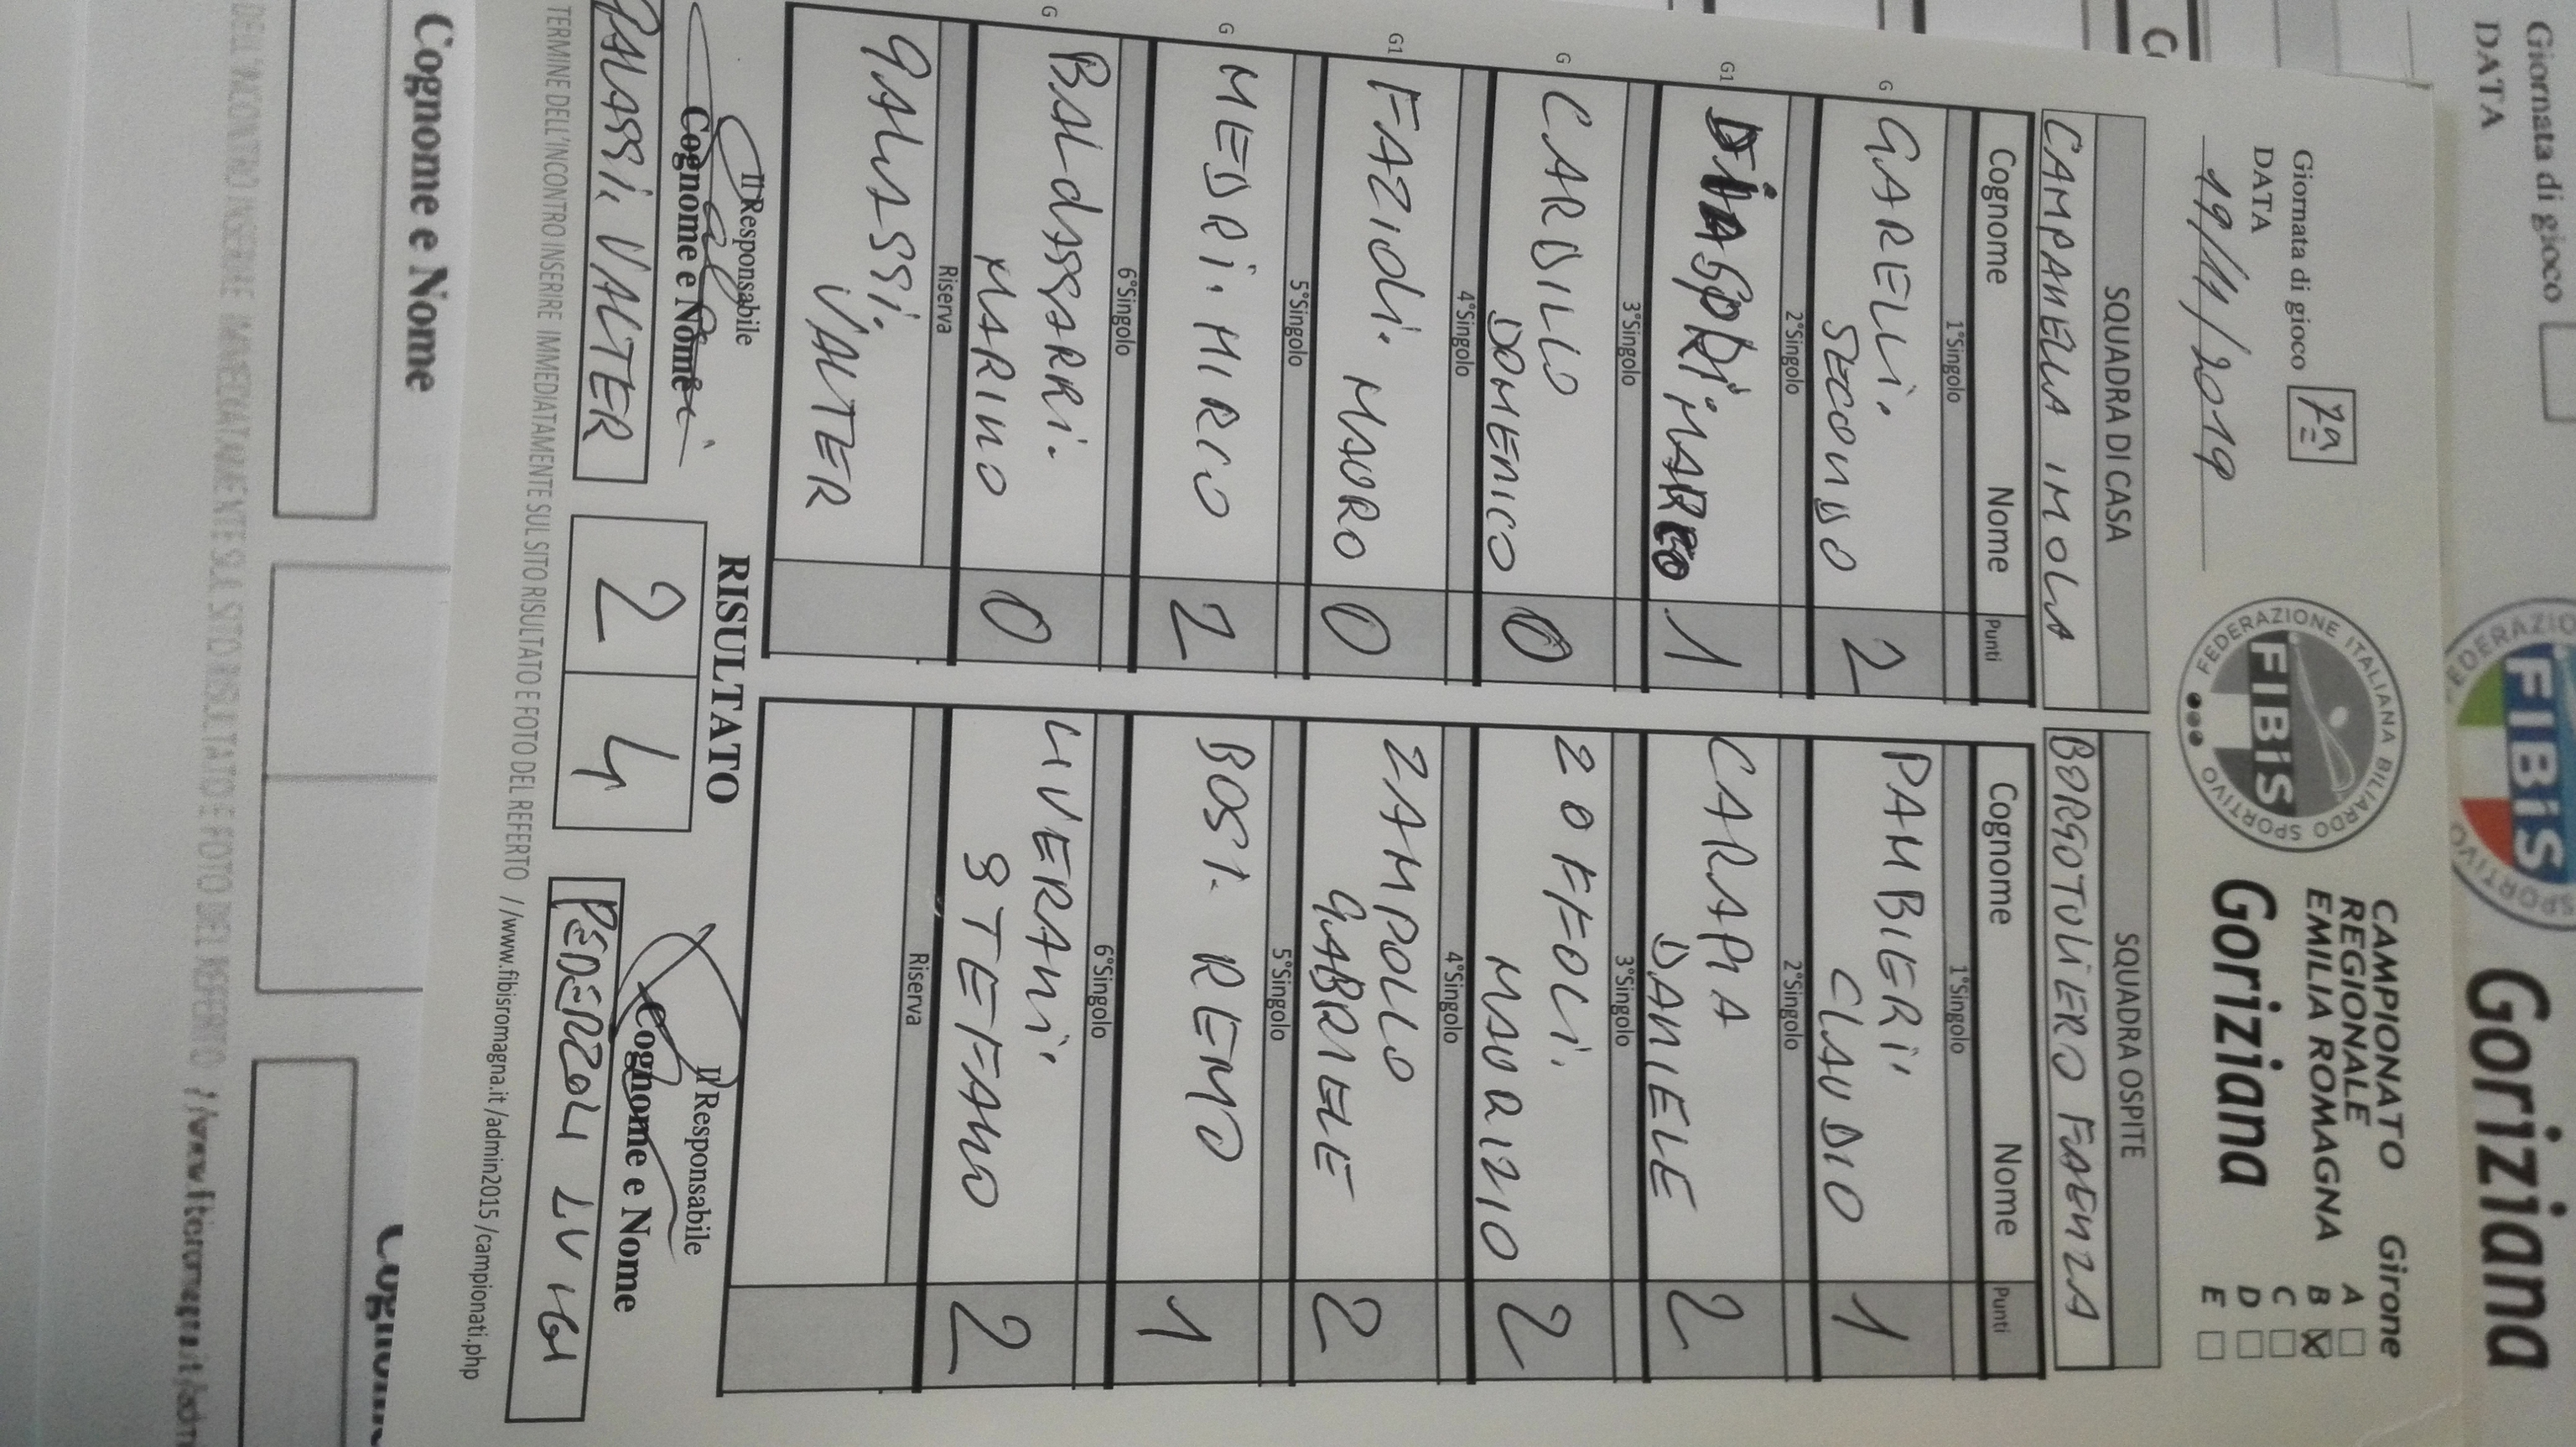 Giornata di gioco 7ª
DATA
19/11/2019
FEDERAZIONE ITALIANA BILIARDO SPORTIVO
FIBiS
CAMPIONATO
REGIONALE
EMILIA ROMAGNA
Goriziana
Girone
A
B X
C
D
E
SQUADRA DI CASA
CAMPANELLA IMOLA
Cognome Nome Punti
1°Singolo
G GARELLI. SECONDO 2
2°Singolo
G1 MARCO 1
3°Singolo
G CARDILLO DOMENICO 0
4°Singolo
G1 FAZIOLI. MAURO 0
5°Singolo
G MEDRI. MIRCO 2
6°Singolo
G BALdASSARRI. MARINO 0
Riserva
GALASSI. VALTER
SQUADRA OSPITE
BORGOTULIERO FAENZA
Cognome Nome Punti
1°Singolo
PAMBIERI CLAUDIO 1
2°Singolo
CARAPIA DANIELE 2
3°Singolo
ZOFFOLI. MAURIZIO 2
4°Singolo
ZAMPOLLO GABRIELE 2
5°Singolo
BOSI. REMO 1
6°Singolo
LIVERANI STEFANO 2
Riserva
Il Responsabile
Cognome e Nome
GALASSI. VALTER
RISULTATO
2 4
Il Responsabile
Cognome e Nome
PEDERZOLI LUIGI
TERMINE DELL'INCONTRO INSERIRE IMMEDIATAMENTE SUL SITO RISULTATO E FOTO DEL REFERTO //www.fibisromagna.it /admin2015 /campionati.php
Giornata di gioco
DATA
FIBiS
Goriziana
Cognome e Nome
DEL'INCONTRO INSERIRE IMMEDIATAMENTE SUL SITO RISULTATO E FOTO DEL REFERTO